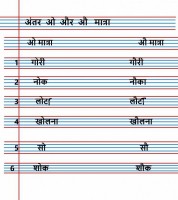 अंतर ओ और औ मात्रा
ओ मात्रा औ मात्रा
1 गोरी गौरी
2 नोक नौका
3 लोटा लौटा
4 खोलना खौलना
5 सो सौ
6 शोक शौक